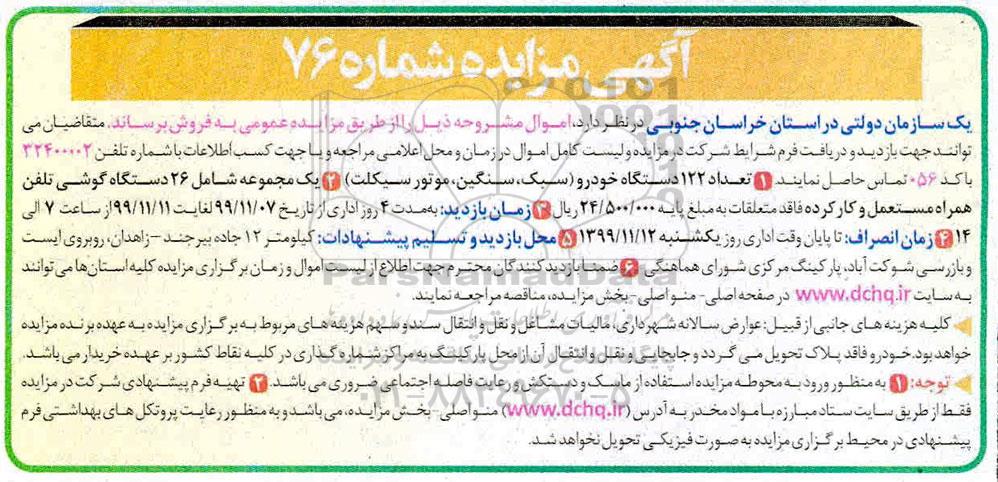 آگهی مزایده شماره ۷۶
یک سازمان دولتی در استان خراسان جنوبی در نظر دارد، اموال مشروحه ذیل را از طریق مزایده عمومی به فروش برساند. متقاضیان می
توانند جهت بازدید و دریافت فرم شرایط شرکت در مزایده و لیست کامل اموال در زمان و محل اعلامی مراجعه و یا جهت کسب اطلاعات با شماره تلفن ۳۲۴۰۰۰۰۲
با کد ۰۵۶ تماس حاصل نمایند. ۱ تعداد ۱۲۲ دستگاه خودرو (سبک، سنگین، موتور سیکلت) ۲ یک مجموعه شامل ۲۶ دستگاه گوشی تلفن
همراه مستعمل و کار کرده فاقد متعلقات به مبلغ پایه ۲۴/۵۰۰/۰۰۰ ریال ۳ زمان بازدید: به مدت ۴ روز اداری از تاریخ ۹۹/۱۱/۰۷ لغایت ۹۹/۱۱/۱۱ از ساعت ۷ الی
۱۴ ۴ زمان انصراف: تا پایان وقت اداری روز یکشنبه ۱۳۹۹/۱۱/۱۲ ۵ محل بازدید و تسلیم پیشنهادات: کیلومتر ۱۲ جاده بیرجند - زاهدان، روبروی ایست
و بازرسی شوکت آباد، پارکینگ مرکزی شورای هماهنگی ۶ ضمنا بازدید کنندگان محترم جهت اطلاع از لیست اموال و زمان برگزاری مزایده کلیه استان‌ها می توانند
به سایت www.dchq.ir در صفحه اصلی- منو اصلی- بخش مزایده، مناقصه مراجعه نمایند.
کلیه هزینه های جانبی از قبیل: عوارض سالانه شهرداری، مالیات مشاغل و نقل و انتقال سند و سهم هزینه های مربوط به برگزاری مزایده به عهده برنده مزایده
خواهد بود. خودرو فاقد پلاک تحویل می گردد و جابجایی و نقل و انتقال آن از محل پارکینگ به مراکز شماره گذاری در کلیه نقاط کشور بر عهده خریدار می باشد.
توجه: ۱ به منظور ورود به محوطه مزایده استفاده از ماسک و دستکش و رعایت فاصله اجتماعی ضروری می باشد. ۲ تهیه فرم پیشنهادی شرکت در مزایده
فقط از طریق سایت ستاد مبارزه با مواد مخدر به آدرس (www.dchq.ir) منو اصلی- بخش مزایده، می باشد و به منظور رعایت پروتکل های بهداشتی فرم
پیشنهادی در محیط برگزاری مزایده به صورت فیزیکی تحویل نخواهد شد.
ParsNamadData
۰۲۱-۸۸۳۴۹۶۷۰-۵